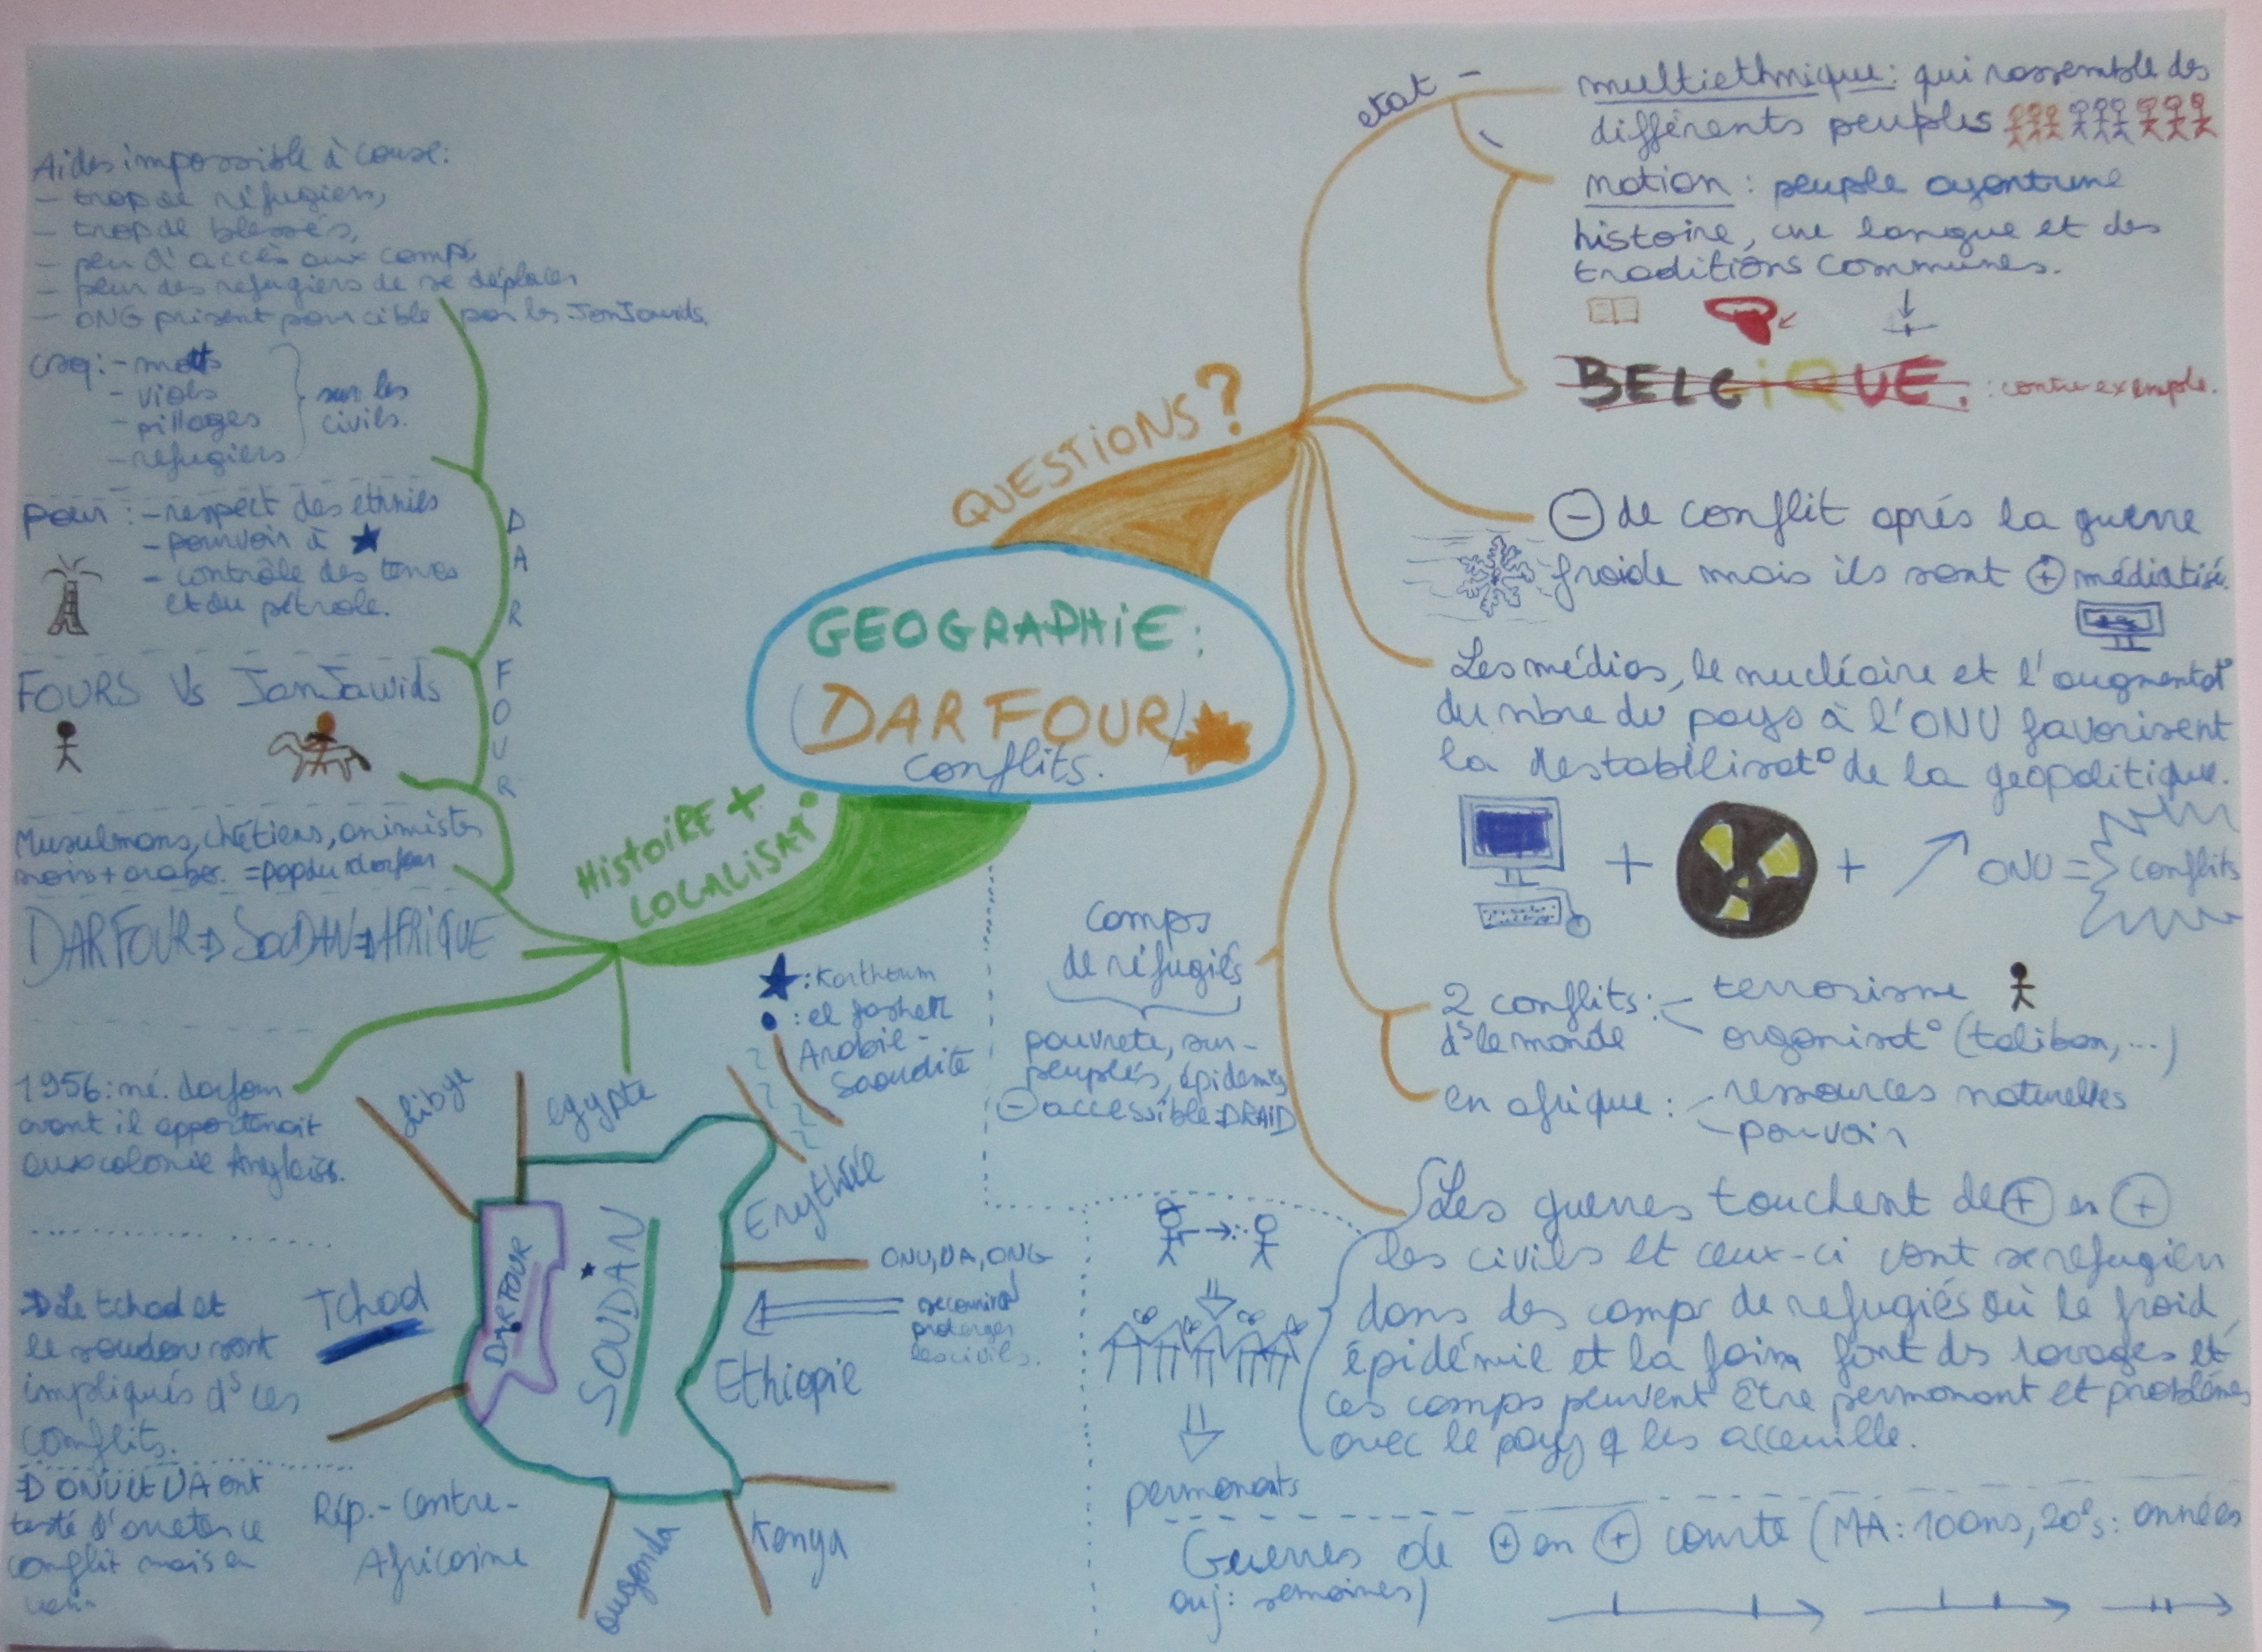 GEOGRAPHIE :
(DARFOUR)
conflits.
QUESTIONS ?
etat
multiethnique : qui rassemble des
différents peuples
nation : peuple ayant une
histoire, une langue et des
traditions communes.
BELGiQUE. : contre exemple.
⊖ de conflit aprés la guerre
froide mais ils sont ⊕ médiatisé.
Les médias, le nucléaire et l'augmentat°
du nbre du pays à l'ONU favorisent
la destabilisat° de la geopolitique.
+ + ONU = conflits
2 conflits : - terrorisme
ds le monde - organisat° (taliban, ...)
en afrique : - ressources naturelles
- pouvoir
camps
de réfugiés
pauvrete, sur-
peuplés, épidemies
⊖ accessible ⇒ RAID
Les guerres touchent de ⊕ en ⊕
les civils et ceux-ci vont se refugier
dans des camps de refugiés où le froid,
épidémie et la faim font des ravages et
ces camps peuvent être permanant et problémes
avec le pays q les acceuille.
permanents
Guerres de ⊕ en ⊕ courte (MA : 100ans, 20e s : années
auj : semaines)
HistoiRE +
LOCALISAT°
DARFOUR
Aides impossible à cause :
- trop de réfugiers,
- trop de blessés,
- peu d'accès aux camps,
- peur des refugiers de se déplacer
- ONG prisent pour cible par les JanJawids.
csq : - morts
- viols
- pillages
- refugiers
sur les
civils.
pour : - respect des ethnies
- pouvoir à ★
- contrôle des terres
et du pétrole.
FOURS Vs JanJawids
Musulmans, chrétiens, animistes
noirs + arabes. = pop du darfour
DARFOUR ⇒ SOUDAN ⇒ AFRIQUE
1956 : né. darfour
avant il appartenait
aux colonie Anglaises.
⇒ Le tchad et
le soudan sont
impliqués ds ces
conflits.
⇒ ONU et UA ont
testé d'arreter ce
conflit mais en
vain.
★ : Karthoum
• : el fasher
Arabie-
Saoudite
Libye
egypte
Erythrée
ONU, UA, ONG
secourir
protéger
les civils.
Tchad
DARFOUR
SOUDAN
Ethiopie
Rép.-Centre-
Africaine
ouganda
Kenya